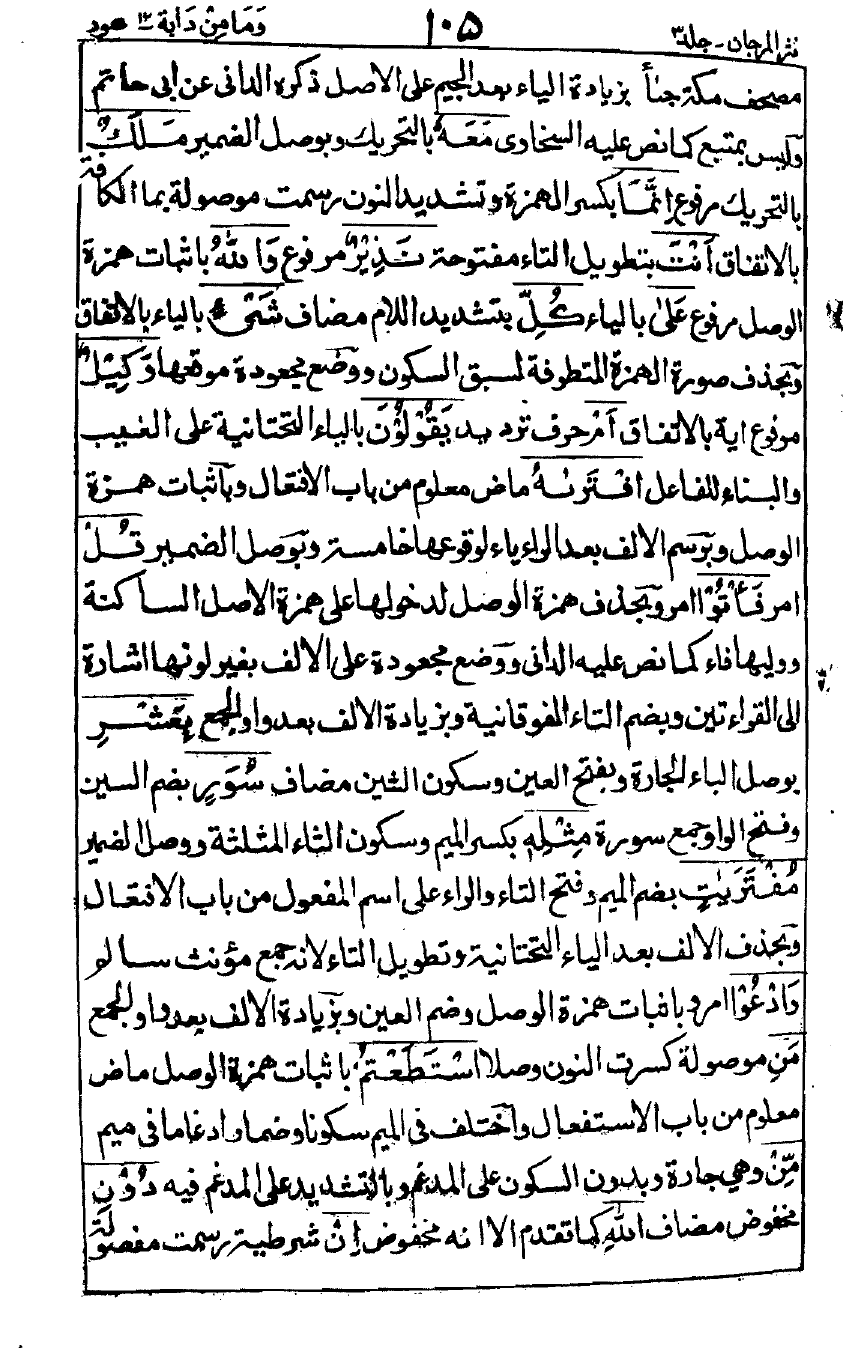 نثر المرجان - جلد ٣ ١٠٥ وَمَا مِنْ دَآبة ١٢ هود
مصحف مكة جيأ بزيادة الياء بعد الجيم على الاصل ذكره الدانى عن ابى حاتم
وليس بمتبع كما نص عليه السخاوى مَعَهٗ بالتحريك وبوصل الضمير مَلَكٌ
بالتحريك مرفوع اِنَّمَا بكسر الهمزة وتشديد النون رسمت موصولة بما الكافة
بالاتفاق اَنْتَ بتطويل التاء مفتوحة نَذِيْرٌ مرفوع وَاللّٰهُ باثبات همزة
الوصل مرفوع عَلٰى بالياء كُلِّ بتشديد اللام مضاف شَىْءٍ بالياء بالاتفاق
وبحذف صورة الهمزة المتطرفة لسبق السكون ووضع مجعودة موقعها وَكِيْلٌ
مرفوع اية بالاتفاق اَمْ حرف ترديد يَقُوْلُوْنَ بالياء التحتانية على الغيب
والبناء للفاعل افْتَرٰىهُ ماض معلوم من باب الافتعال وباثبات همزة
الوصل وبرسم الالف بعد الراء ياء لوقوعها خامسة وبوصل الضمير قُلْ
امر فَأْتُوْا امر وبحذف همزة الوصل لدخولها على همزة الاصل الساكنة
ووليها فاء كما نص عليه الدانى ووضع مجعودة على الالف بغير لونها اشارة
الى القراءتين وبضم التاء الفوقانية وبزيادة الالف بعد واو الجمع بِعَشْرِ
بوصل الباء الجارة وبفتح العين وسكون الشين مضاف سُوَرٍ بضم السين
وفتح الواو جمع سورة مِثْلِهٖ بكسر الميم وسكون الثاء المثلثة ووصل الضمير
مُفْتَرَيٰتٍ بضم الميم وفتح التاء والراء على اسم المفعول من باب الافتعال
وبحذف الالف بعد الياء التحتانية وتطويل التاء لانه جمع مؤنث سالم
وَادْعُوْا امر وباثبات همزة الوصل وضم العين وبزيادة الالف بعد واو الجمع
مَنِ موصولة كسرت النون وصلا اسْتَطَعْتُمْ باثبات همزة الوصل ماض
معلوم من باب الاستفعال واختلف فى الميم سكونا وضما وادغاما فى ميم
مِّنْ وهى جارة وبدون السكون على المدغم وبالتشديد على المدغم فيه دُوْنِ
مخفوض مضاف اللّٰهِ كما تقدم الا انه مخفوض اِنْ شرطية رسمت مفصولة